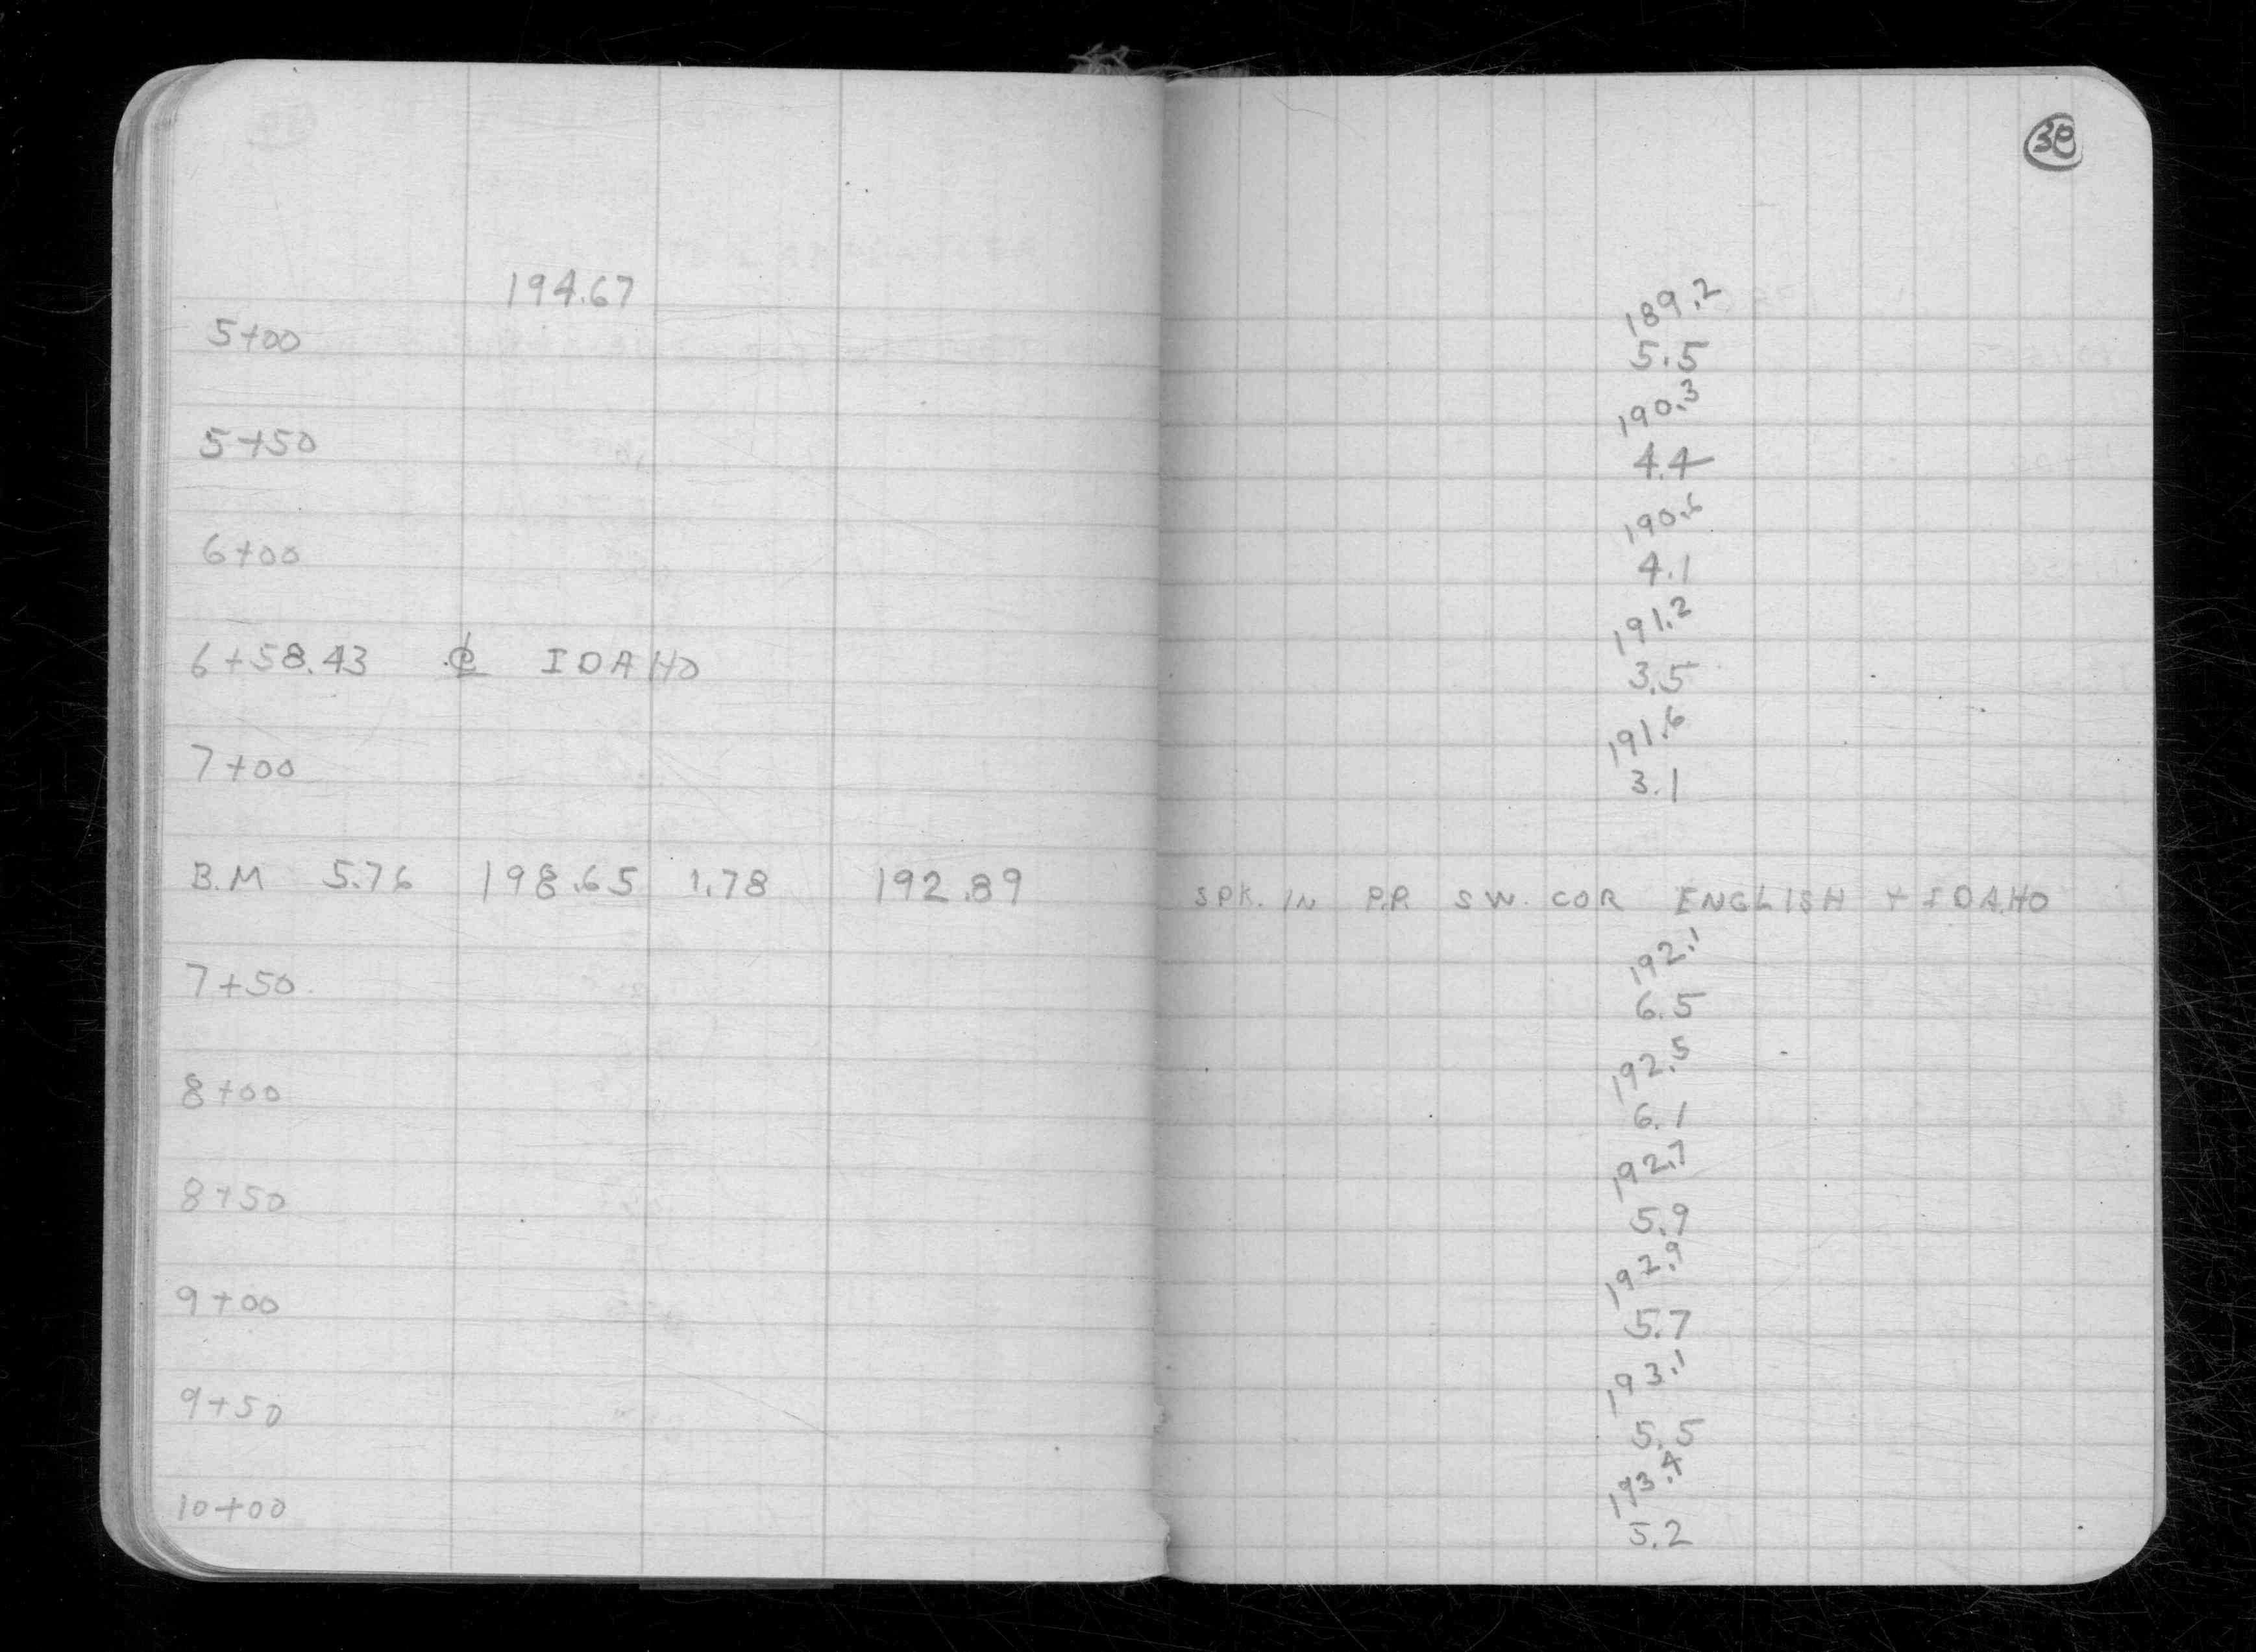 38
194.67
189.2
5+00 5.5
190.3
5+50 4.4
190.6
6+00 4.1
191.2
6+58.43 ℄ IDAHO 3.5
191.6
7+00 3.1
B.M 5.76 198.65 1.78 192.89 SPK. IN P.P. SW. COR ENGLISH + IDAHO
192.1
7+50 6.5
192.5
8+00 6.1
192.7
8+50 5.9
192.9
9+00 5.7
193.1
9+50 5.5
193.4
10+00 5.2